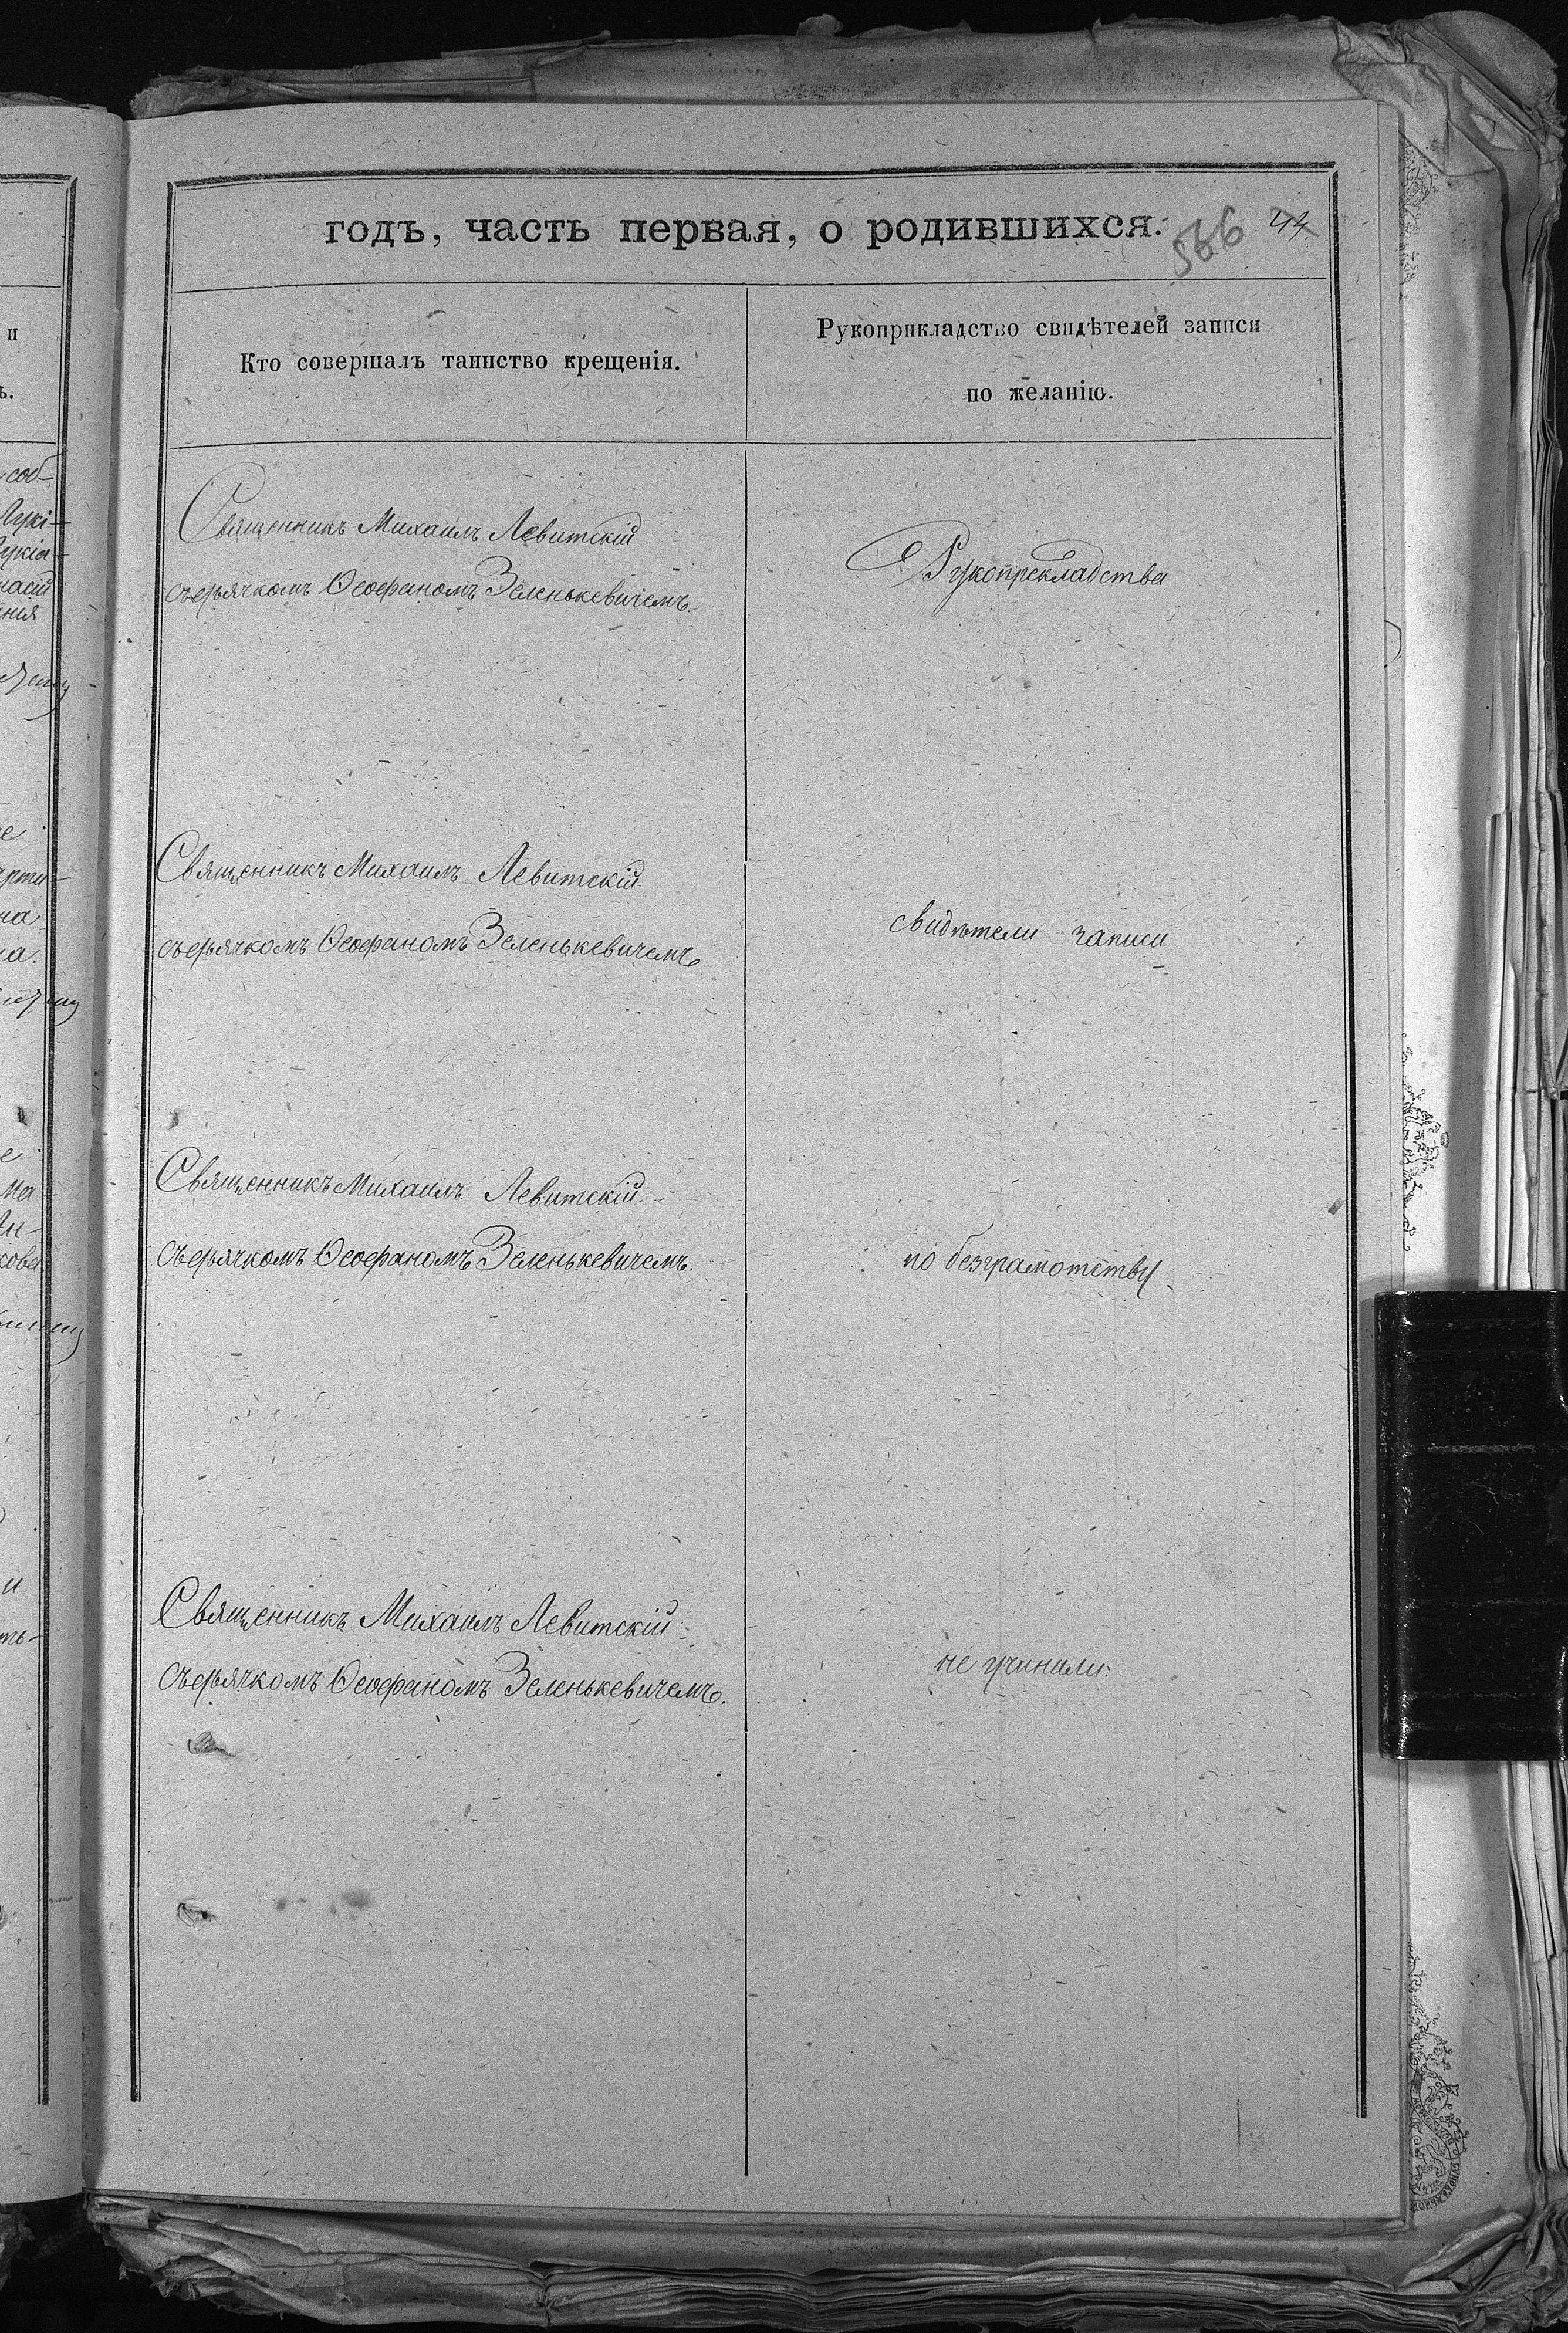 годъ, часть первая, о родившихся.
566 44
Кто совершалъ таинство крещенія.
Рукоприкладство свидѣтелей записи
по желанію.
Священникъ Михаилъ Левитскій
съдьячкомъ Ѳеофаномъ Зеленькевичемъ.
Рукопрекладства
Священникъ Михаилъ Левитскій
съдьячкомъ Ѳеофаномъ Зеленькевичемъ
свидѣтели записи
Священникъ Михаилъ Левитскій
съдьячкомъ Ѳеофаномъ Зеленькевичемъ.
по безграмотству
Священникъ Михаилъ Левитскій
съдьячкомъ Ѳеофаномъ Зеленькевичемъ.
не учинили.